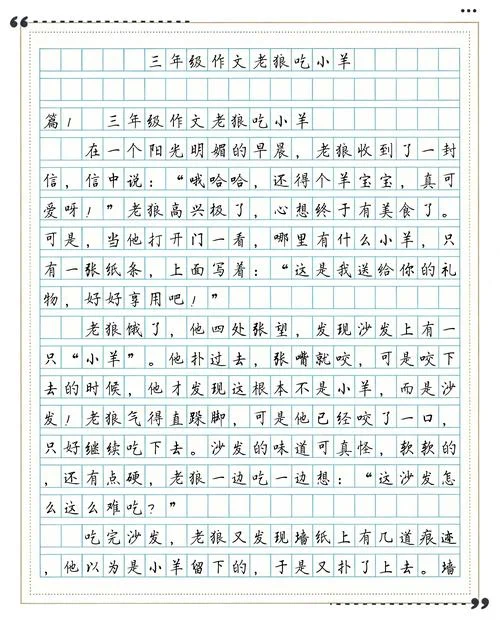 三年级作文老狼吃小羊
篇1 三年级作文老狼吃小羊
在一个阳光明媚的早晨，老狼收到了一封
信，信中说：“哦哈哈，还得个羊宝宝，真可
爱呀！”老狼高兴极了，心想终于有美食了。
可是，当他打开门一看，哪里有什么小羊，只
有一张纸条，上面写着：“这是我送给你的礼
物，好好享用吧！”
老狼饿了，他四处张望，发现沙发上有一
只“小羊”。他扑过去，张嘴就咬，可是咬下
去的时候，他才发现这根本不是小羊，而是沙
发！老狼气得直跺脚，可是他已经咬了一口，
只好继续吃下去。沙发的味道可真怪，软软的
，还有点硬，老狼一边吃一边想：“这沙发怎
么这么难吃？”
吃完沙发，老狼又发现墙纸上有几道痕迹
，他以为是小羊留下的，于是又扑了上去。墙